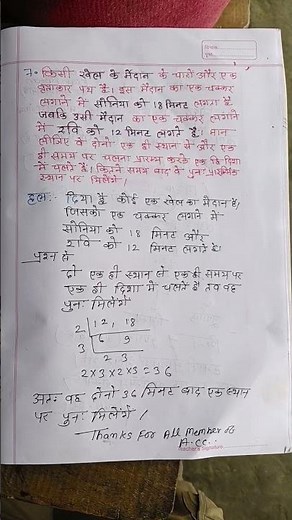 7. किसी खेल के मैदान के चारों और एक
वृत्ताकार पथ है। इस मैदान का एक चक्कर
लगाने में सोनिया को 18 मिनट लगते हैं
जबकि उसी मैदान का एक चक्कर लगाने
में रवि को 12 मिनट लगते हैं। मान
लीजिए वे दोनों एक ही स्थान से और एक
ही समय पर चलना प्रारम्भ करके एक ही दिशा
में चलते हैं। कितने समय बाद वे पुनः प्रारंभिक
स्थान पर मिलेंगे।
हल:- दिया है कोई एक खेल का मैदान है,
जिसका एक चक्कर लगाने में
सोनिया को 18 मिनट और
रवि को 12 मिनट लगते हैं।
प्रश्न से
दो एक ही स्थान से एक ही समय पर
एक ही दिशा में चलते हैं तब वह
पुनः मिलेंगे
2 | 12, 18
3 | 6 9
2, 3
2 × 3 × 2 × 3 = 36
अतः वह दोनो 36 मिनट बाद एक स्थान
पर पुनः मिलेंगे।
Thanks For All Member of
A.CC.
Teacher's Signature